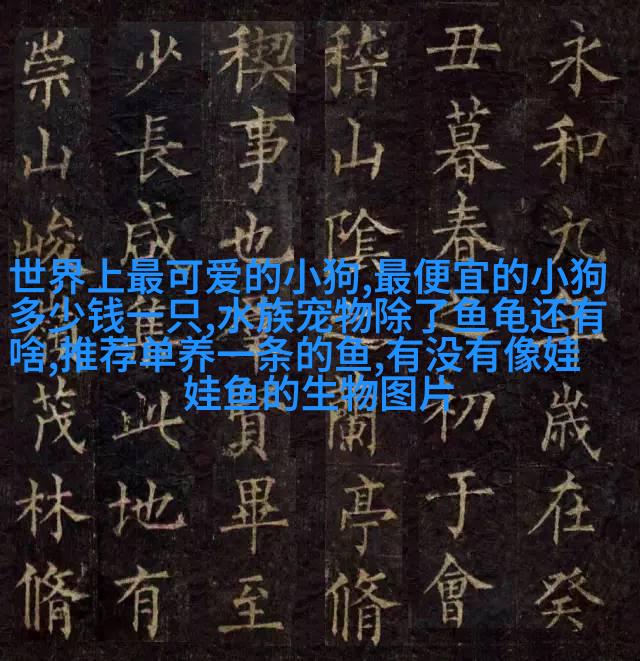 永和九年歲在癸
丑暮春之初于會
稽山陰蘭亭脩
稧事也賢畢至
少長咸集此地有
崇山峻茂林脩
世界上最可爱的小狗,最便宜的小狗
多少钱一只,水族宠物除了鱼龟还有
啥,推荐单养一条的鱼,有没有像娃
娃鱼的生物图片